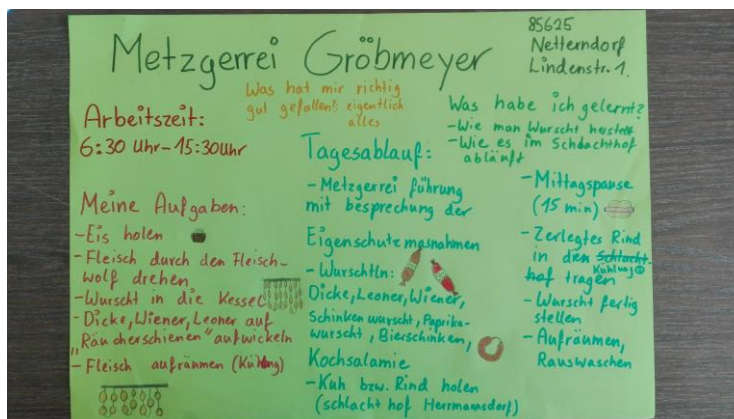 Metzgerrei Gröbmeyer
85625
Netterndorf
Lindenstr. 1.
Was hat mir richtig
gut gefallen?: eigentlich
alles
Arbeitszeit:
6:30 Uhr-15:30Uhr
Meine Aufgaben:
-Eis holen
-Fleisch durch den Fleisch-
wolf drehen
-Wurscht in die Kessel
-Dicke, Wiener, Leoner auf
"Räucherschienen" aufwickeln
-Fleisch aufräumen (Kühlung)
Tagesablauf:
-Metzgerrei führung
mit besprechung der
Eigenschutzmasnahmen
-Wurschtln:
Dicke, Leoner, Wiener,
Schinkenwurscht, Paprika-
wurscht, Bierschinken,
Kochsalamie
-Kuh bzw. Rind holen
(schlacht hof Herrmannsdorf)
Was habe ich gelernt?
-Wie man Wurscht herstellt
-Wie es im Schlachthof
abläuft
-Mittagspause
(15 min)
-Zerlegtes Rind
in den Schlacht-
hof tragen
Kühlung
-Wurscht fertig
stellen
-Aufräumen,
Rauswaschen